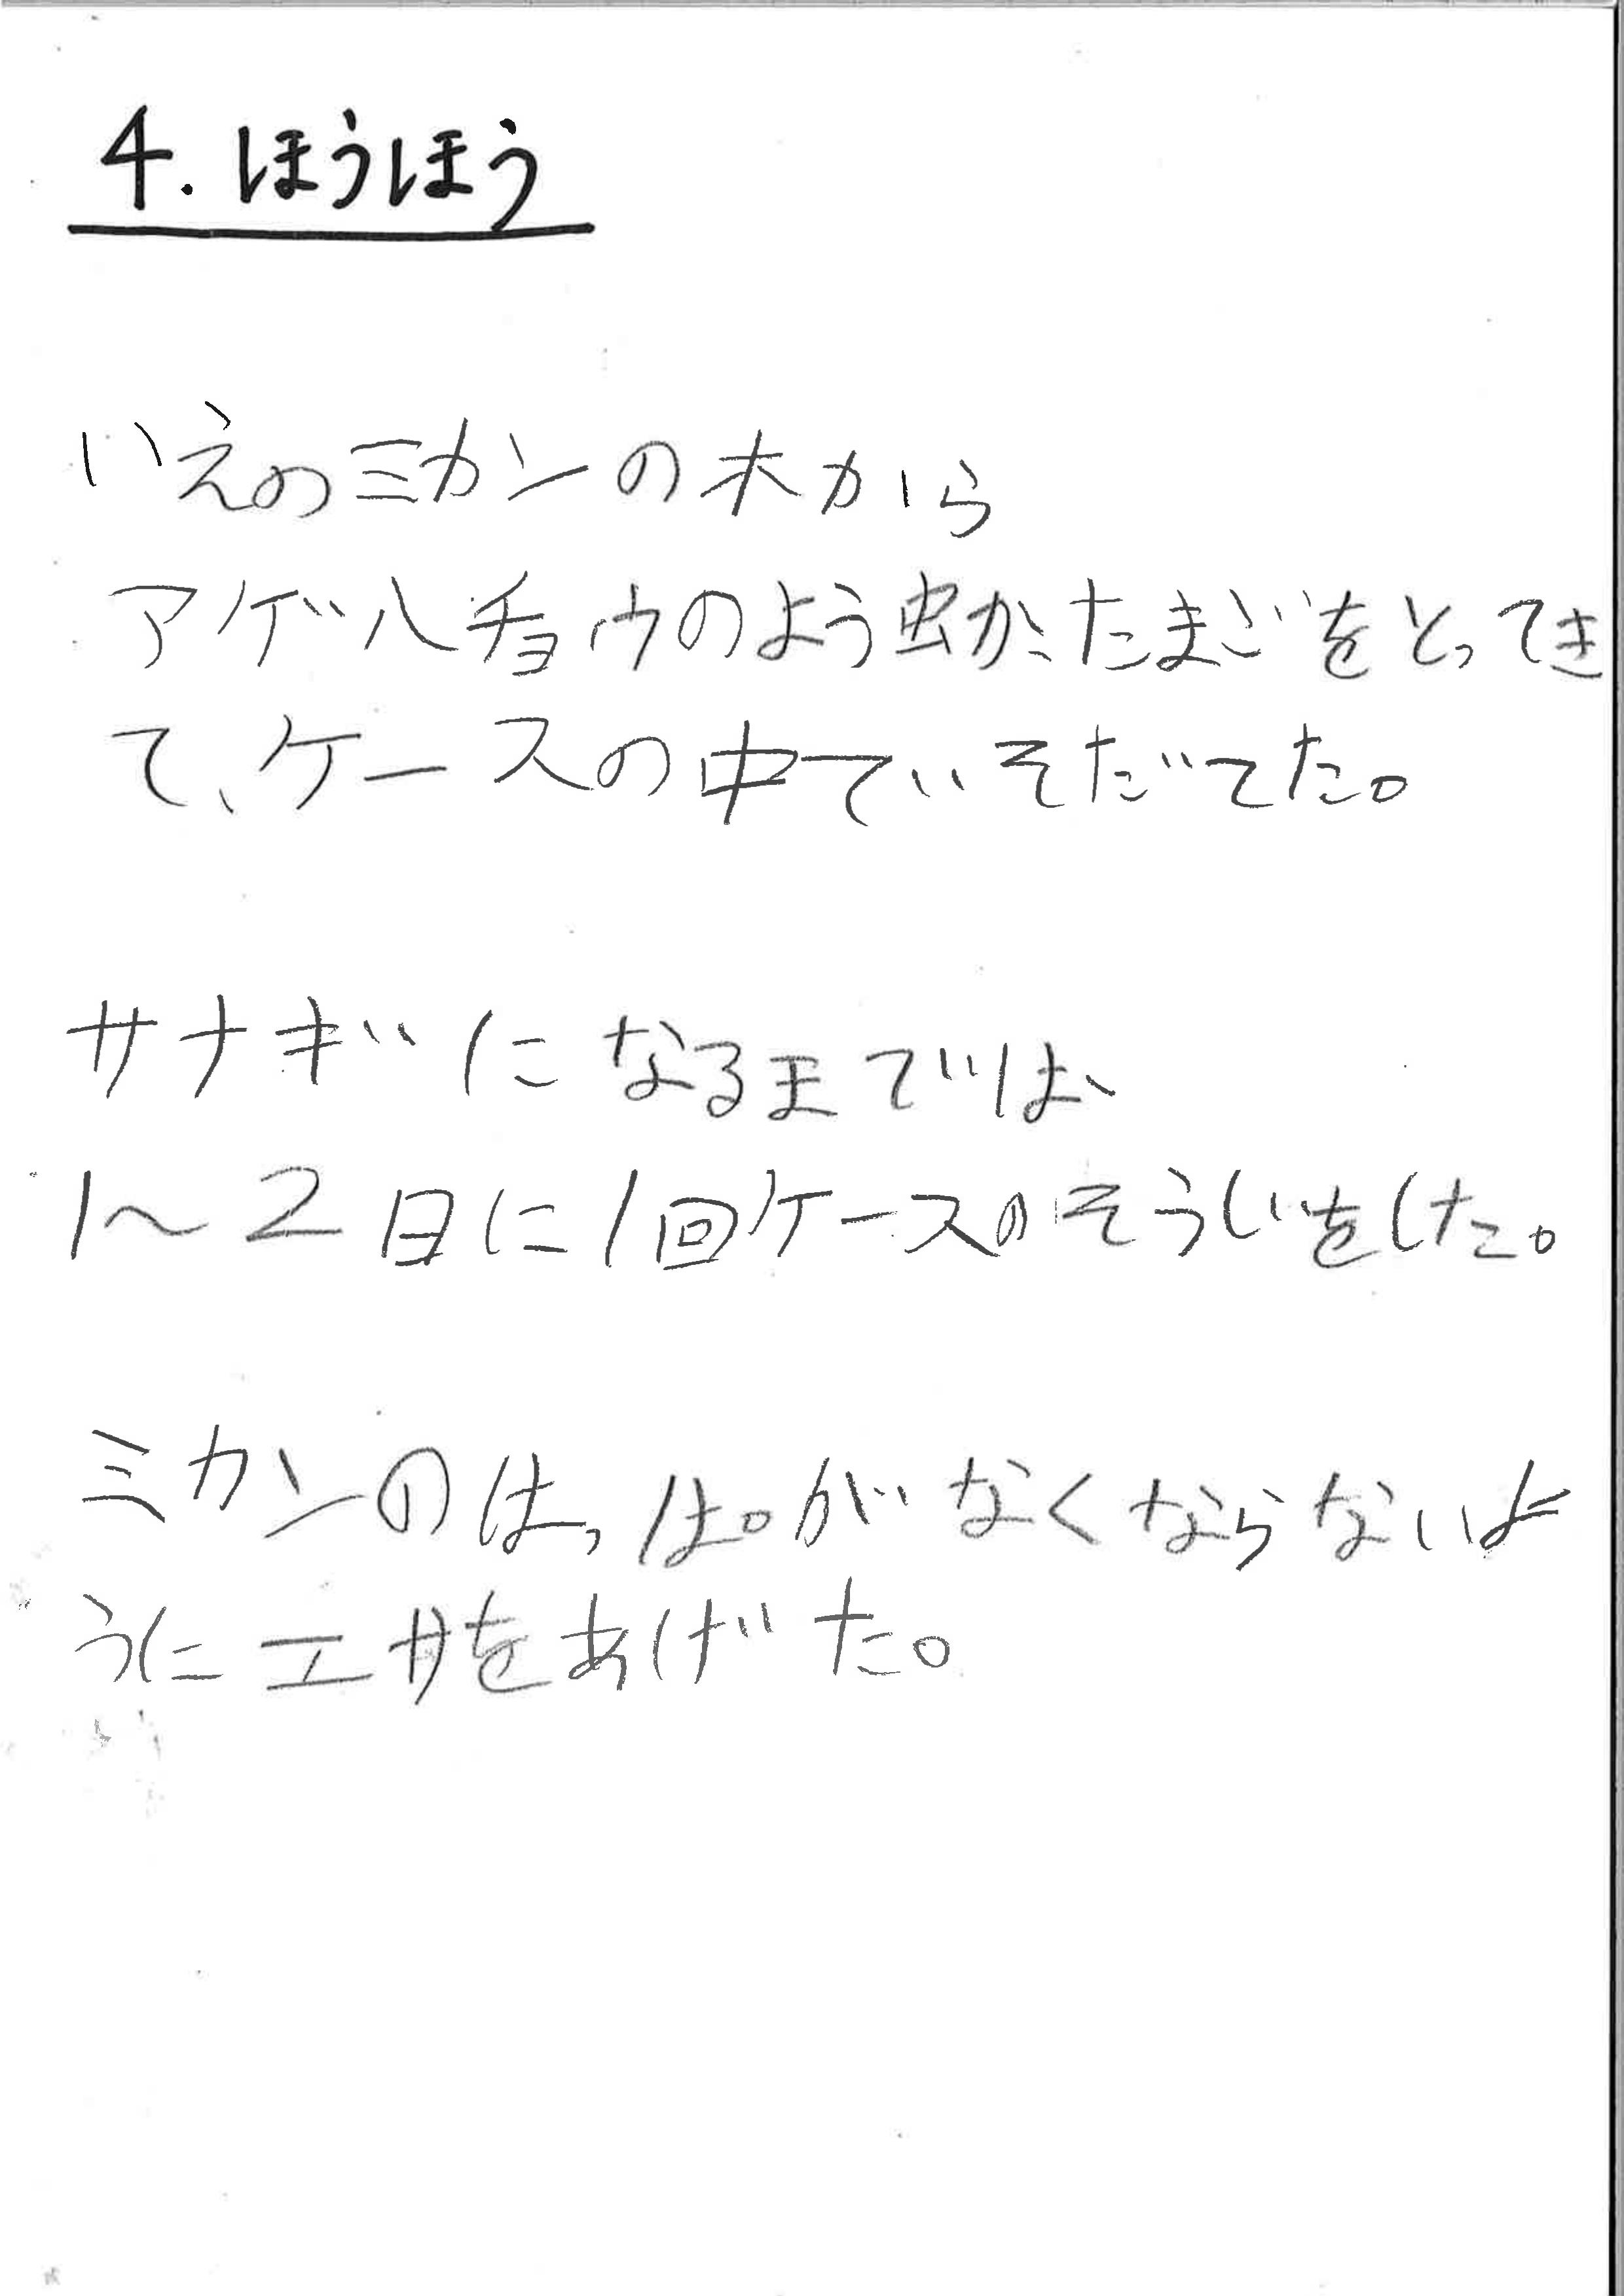 4.ほうほう
いえのミカンの木から
アゲハチョウのよう虫か、たまごをとってき
て、ケースの中でそだてた。
サナギになるまでは、
1～2日に1回ケースのそうじをした。
ミカンのはっぱがなくならないよ
うにエサをあげた。